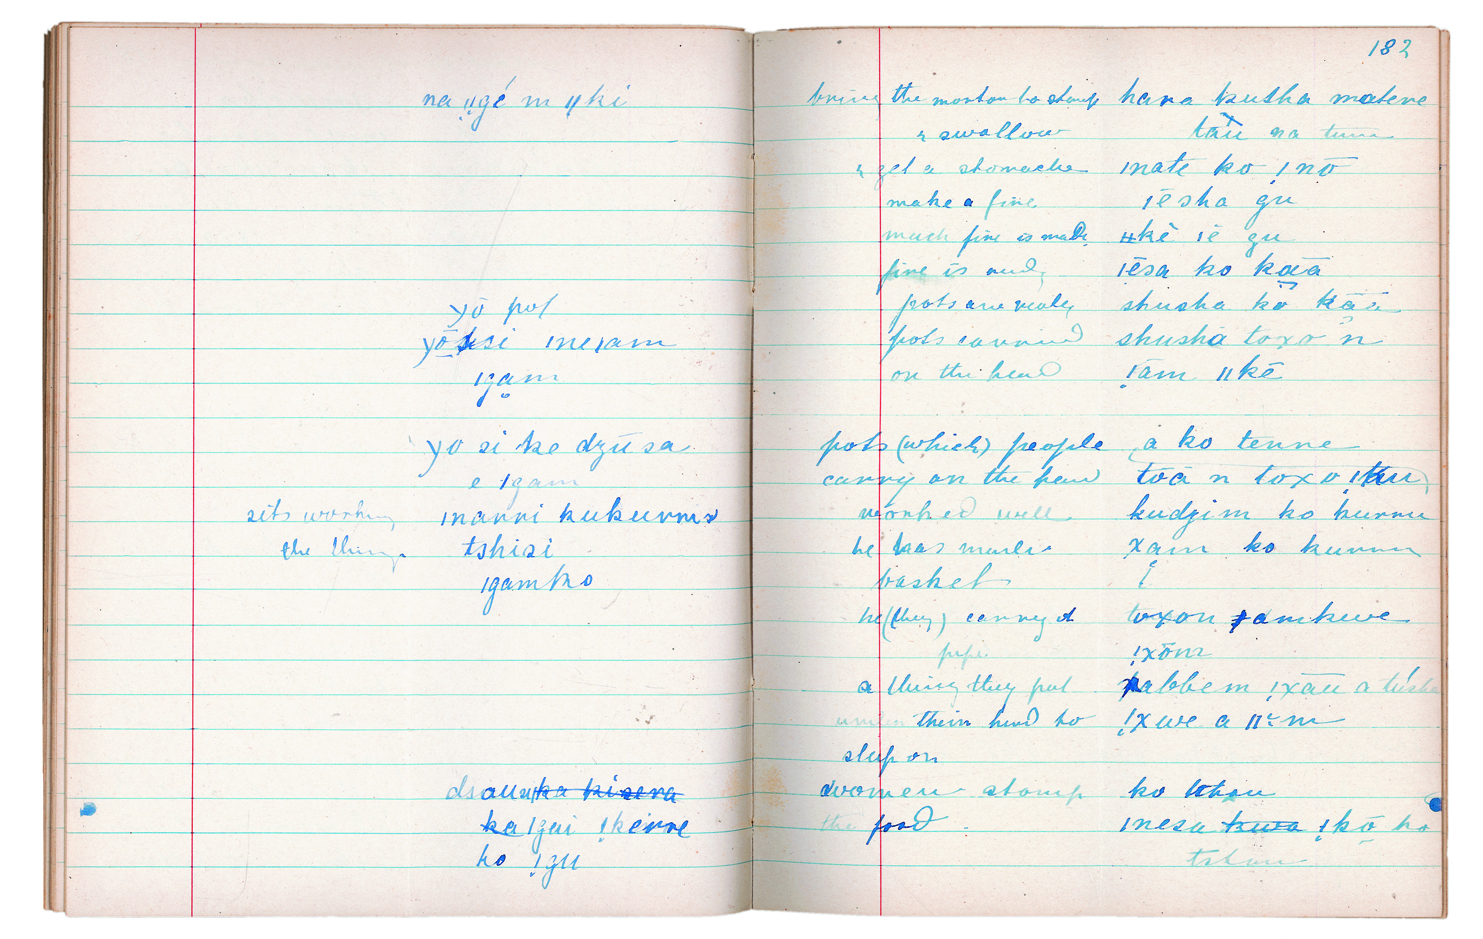 na ǁgé m ǁki
yō pot
yō si ıneıam
ıgam
yo si ke dzūsa
e ıgam
sits working ınanni kukurru
the things tshisi
ıgamko
dsauu ka kisera
ka ıgui !kerre
ko !gu
182
bring the mortar to stomp hana kusha matene
& swallow tāū na tum
& get a stomache ınate ko !nō
make a fire ıēsha gu
much fire is made ǁkē ıē gu
fire is ready ıēsa ko kāā
pots are ready shusha ko kāā
pots carried shusha toxo n
on the head !ām ǁkē
pots (which) people a ko tenne
carry on the head toā n toxo
worked well kudzim ko kurru
he has made xam ko kurru
basket
he (they) carry a toxon ɟamkwe
pipe !xōm
a thing they put !xāū a
under their head to !xwe a
sleep on
women stomp ko tkau
the food ınesa kwa !kō ko